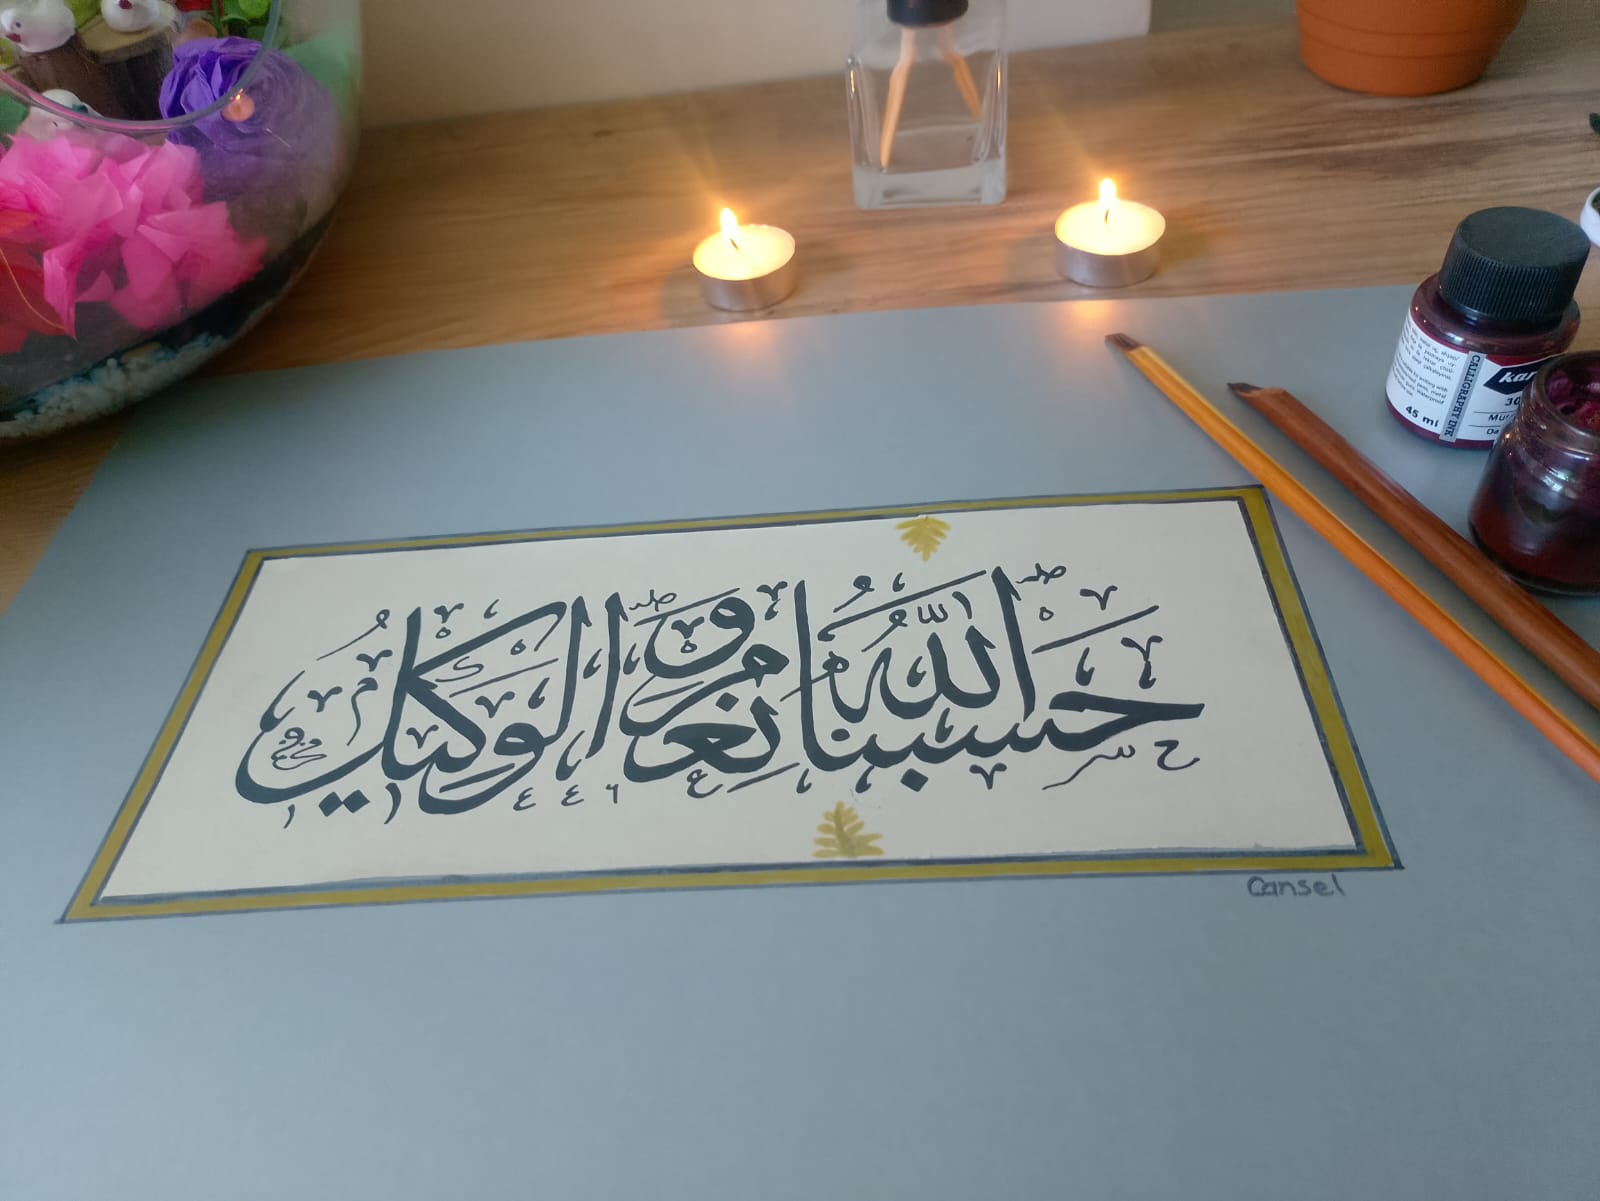 حسبنا الله ونعم الوكيل
١٤٤٦
Cansel
CALLIGRAPHY INK
45 ml
kar
30
Mür